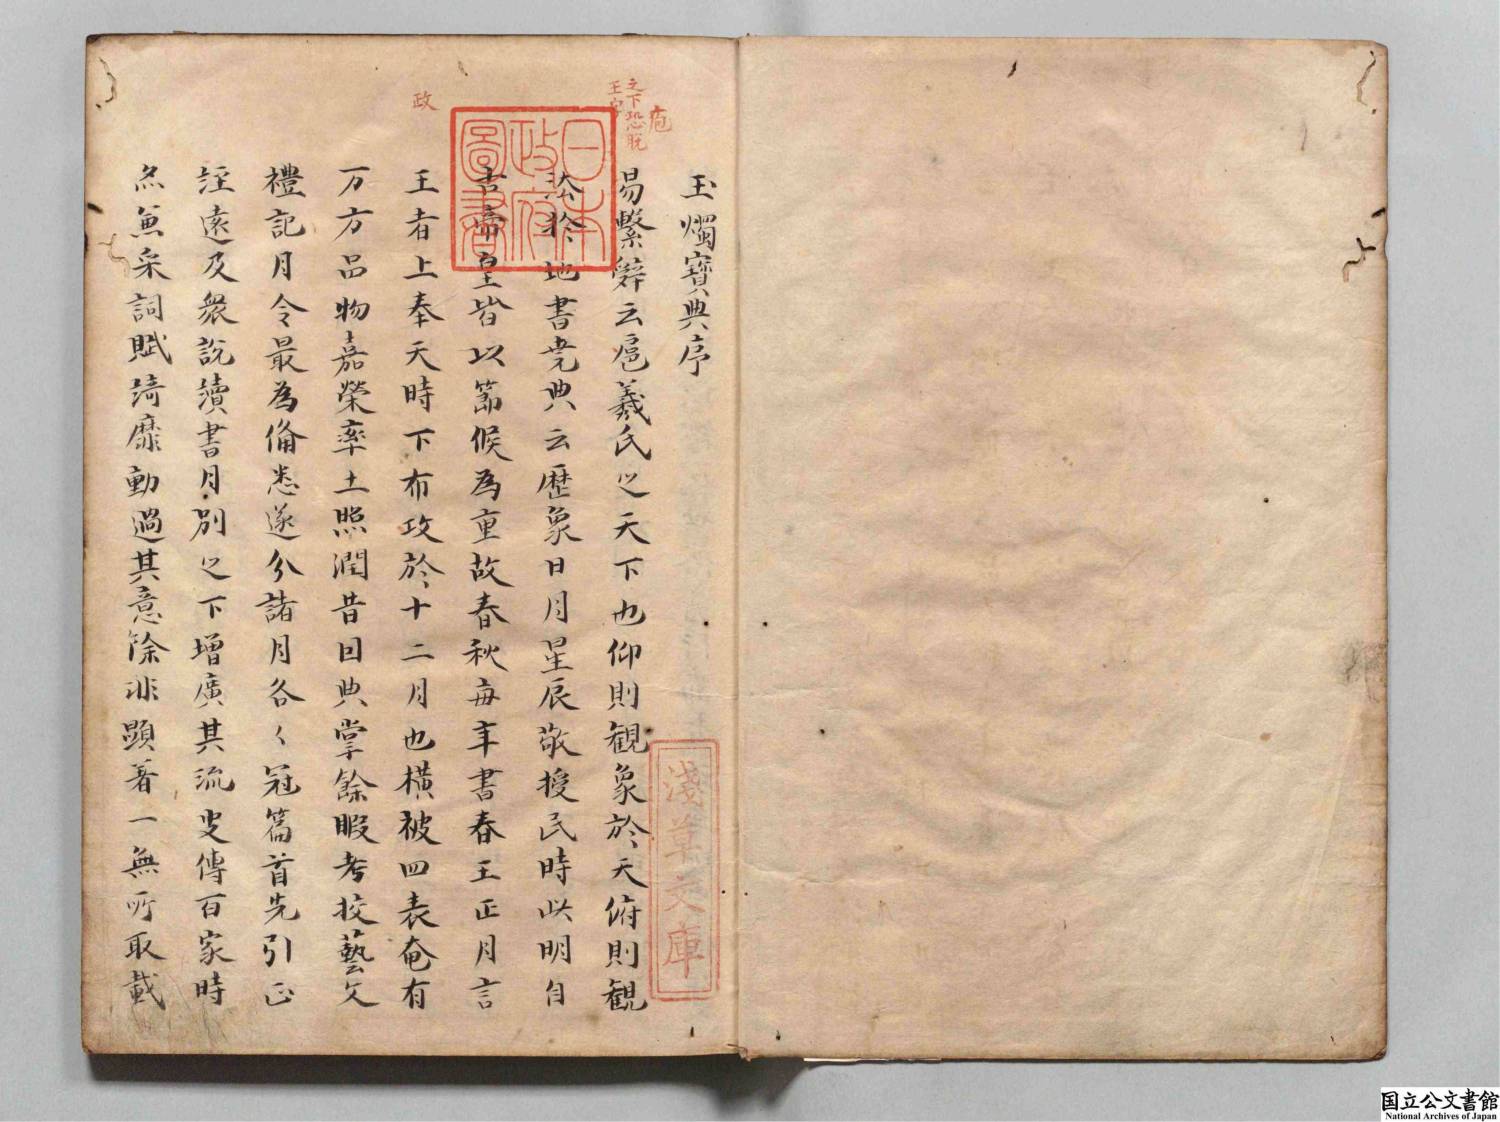 玉燭寶典序
易繫辭云庖羲氏之天下也仰則観象於天俯則観
法於地書尭典云歷象日月星辰敬授民時此明自
古帝皇皆以節候為重故春秋毎年書春王正月言
王者上奉天時下布攻於十二月也橫被四表奄有
万方品物嘉榮率土照潤昔因典掌餘暇考挍藝文
禮記月令最為俻悉遂分諸月各〻冠篇首先引正
註遠及衆說續書月別之下增廣其流史傳百家時
亦兼采詞賦綺靡動過其意除非顕著一無所取載
庖
之下恐脱
王字
政
日本
政府
圖書
淺草文庫
国立公文書館
National Archives of Japan